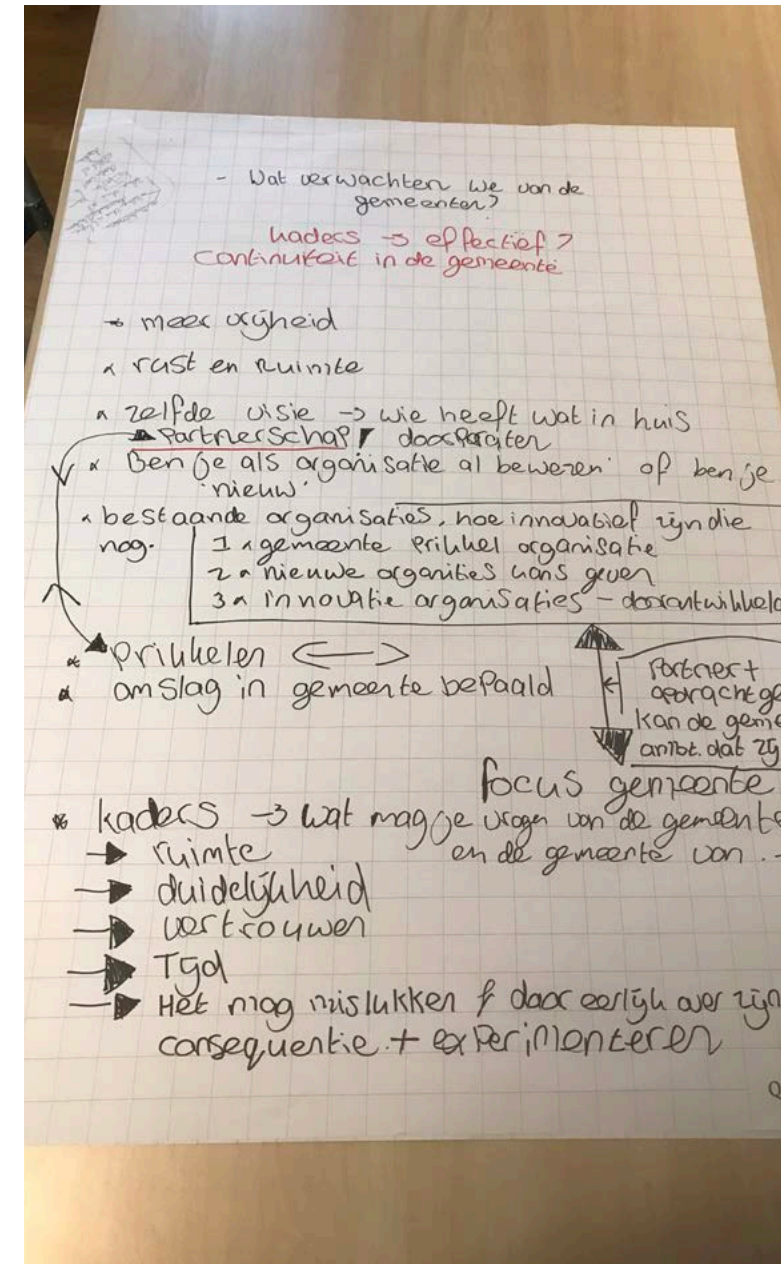 - Wat verwachten we van de
gemeenten?
kaders → effectief?
continuiteit in de gemeente
meer vrijheid
rust en ruimte
zelfde visie → wie heeft wat in huis
Partnerschap
Ben je als organisatie al bewezen of ben je
'nieuw'
bestaande organisaties, hoe innovatief zijn die
nog.
1 gemeente prikkel organisatie
2 nieuwe organities kans geven
3 innovatie organisaties -
prikkelen ⟷
omslag in gemeente bepaald
Partner +
kan de
dat
focus gemeente
kaders → wat mag je vragen van de
→ ruimte en de gemeente van
→ duidelijkheid
→ vertrouwen
→ Tijd
→ Het mag mislukken & daar eerlijk over zijn
consequentie + experimenteren